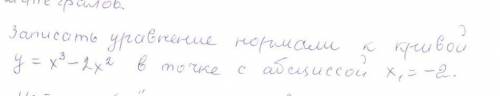 интегралов.
Записать уравнение нормали к кривой
y = x³ - 2x² в точке с абсциссой x₁ = -2.